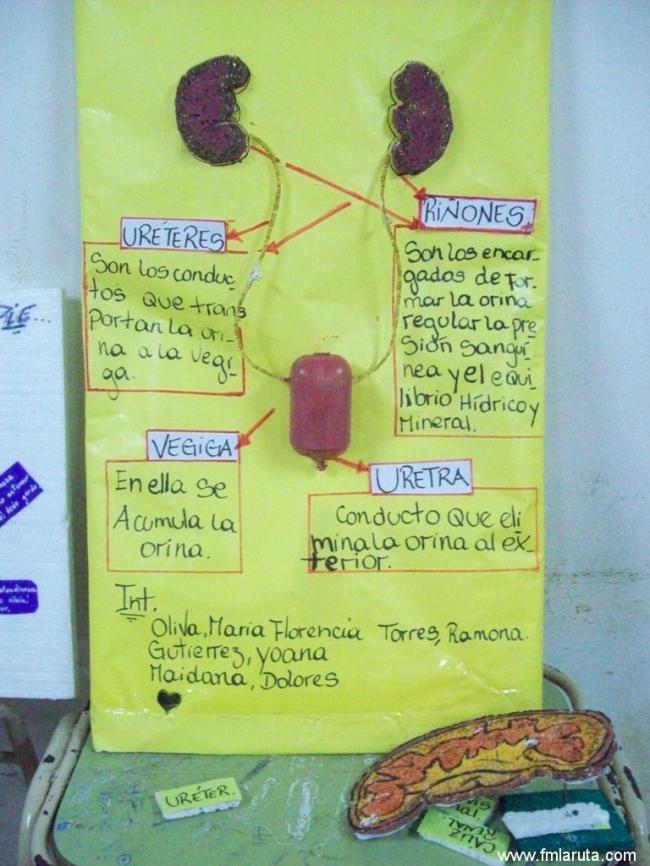 URÉTERES
Son los conduc-
tos que trans
portan la ori-
na a la vegi-
ga.
RIÑONES.
Son los encar-
gados de for-
mar la orina
regular la pre
sión sanguí-
nea y el equi-
librio Hídrico y
Mineral.
VEGIGA
En ella se
Acumula la
orina.
URETRA
Conducto que eli
mina la orina al ex-
terior.
Int.
Oliva, María Florencia Torres, Ramona.
Gutierrez, Yoana
Maidana, Dolores
URÉTER.
CALIZ
RENAL.
www.fmlaruta.com